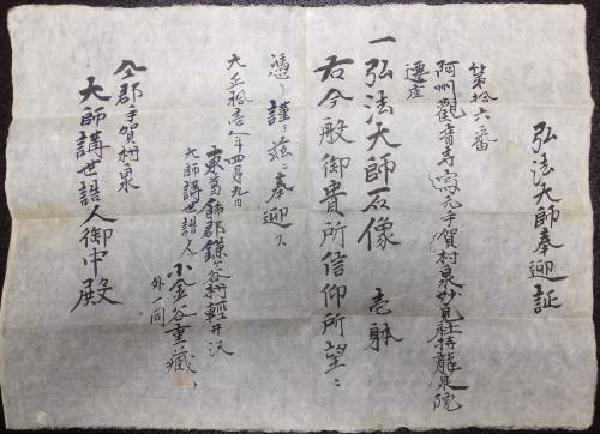 弘法大師奉迎証
第拾六番
阿州觀音寺寫元手賀村泉妙見社持龍泉院
遷座
一弘法大師石像 壱躰
右今般御貴所信仰所望ニ
憑り謹ミ茲ニ奉迎ス
大正拾壱年四月九日
東葛飾郡鎌ヶ谷村軽井沢
大師講世話人
小金谷重藏
外一同
仝郡手賀村泉
大師講世話人御中殿